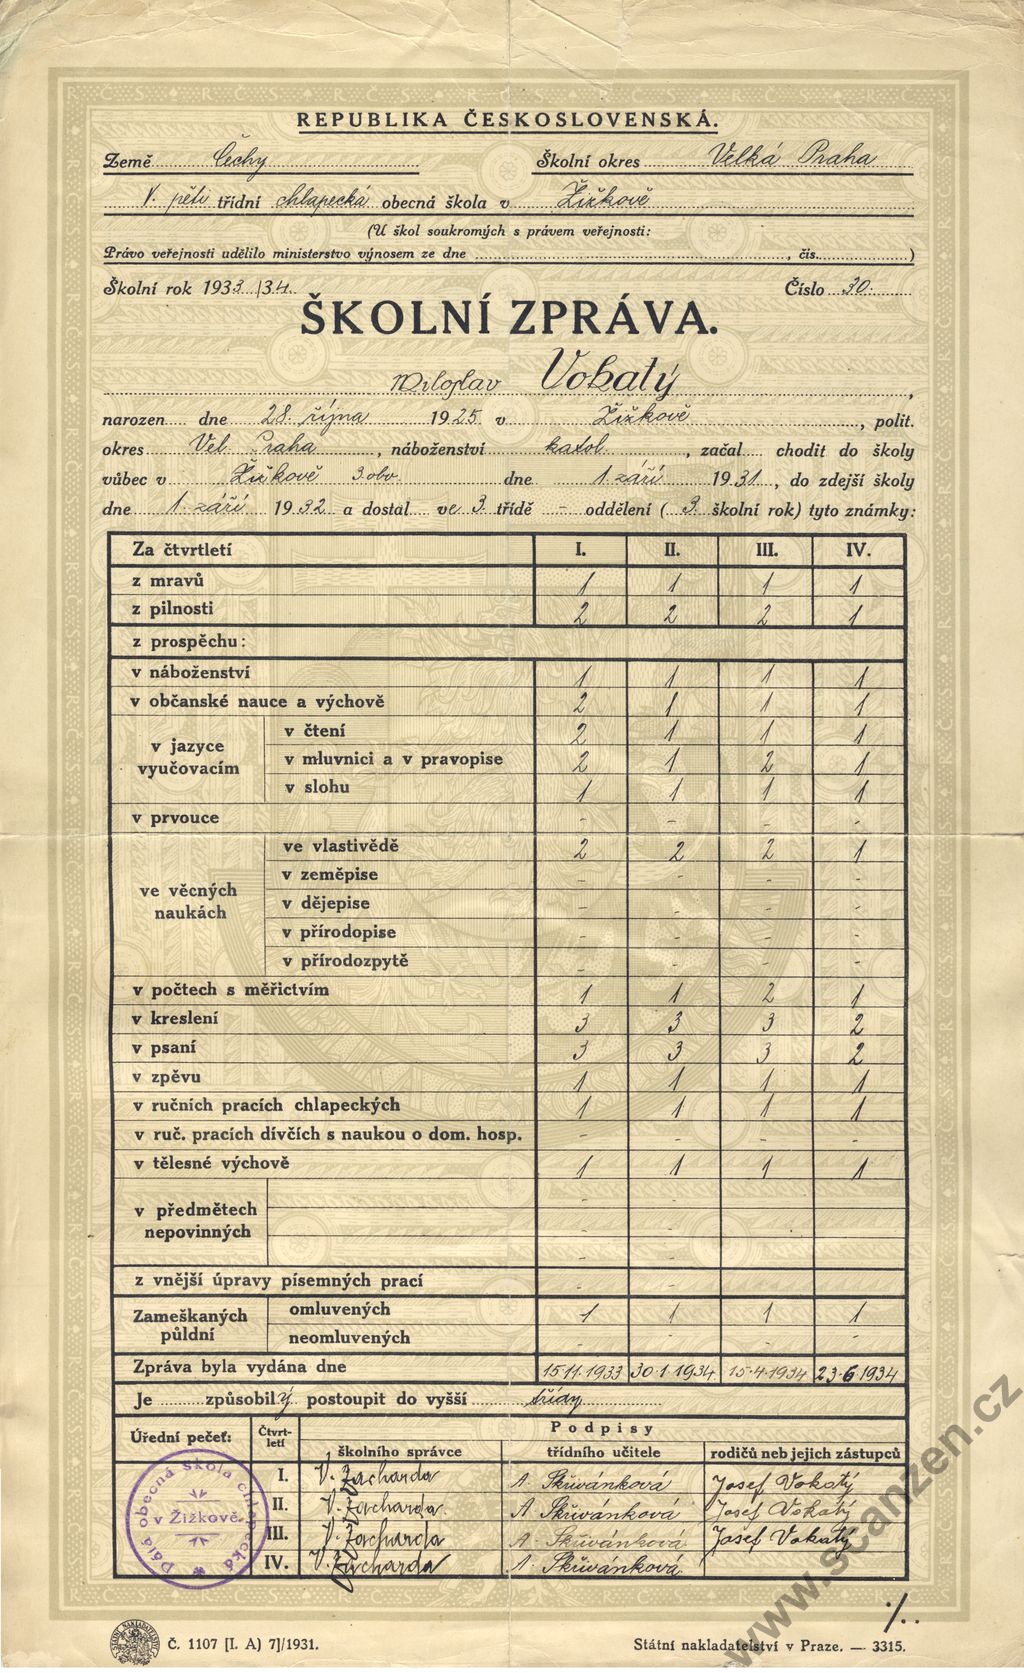 REPUBLIKA ČESKOSLOVENSKÁ.
Země Čechy Školní okres Velká Praha
V. pěti třídní chlapecká obecná škola v Žižkově
(U škol soukromých s právem veřejnosti:
Právo veřejnosti udělilo ministerstvo výnosem ze dne , čís. )
Školní rok 1933/34. Číslo 30.
ŠKOLNÍ ZPRÁVA.
Miloslav Vokatý,
narozen dne 28. října 1925 v Žižkově, polit.
okres Vel. Praha, náboženství katol., začal chodit do školy
vůbec v Žižkově 3.obv. dne 1. září 1931, do zdejší školy
dne 1. září 1932 a dostal ve 3. třídě - oddělení ( 3. školní rok) tyto známky:
Za čtvrtletí I. II. III. IV.
z mravů 1 1 1 1
z pilnosti 2 2 2 1
z prospěchu:
v náboženství 1 1 1 1
v občanské nauce a výchově 2 1 1 1
v jazyce vyučovacím
v čtení 2 1 1 1
v mluvnici a v pravopise 2 1 2 1
v slohu 1 1 1 1
v prvouce - - - -
ve věcných naukách
ve vlastivědě 2 2 2 1
v zeměpise - - - -
v dějepise - - - -
v přírodopise - - - -
v přírodozpytě - - - -
v počtech s měřictvím 1 1 2 1
v kreslení 3 3 3 2
v psaní 3 3 3 2
v zpěvu 1 1 1 1
v ručních pracích chlapeckých 1 1 1 1
v ruč. pracích dívčích s naukou o dom. hosp. - - - -
v tělesné výchově 1 1 1 1
v předmětech nepovinných
z vnější úpravy písemných prací - - - -
Zameškaných půldní
omluvených 1 1 1 1
neomluvených - - - -
Zpráva byla vydána dne 15.11.1933 30.1.1934 15.4.1934 23.6.1934
Je způsobilý postoupit do vyšší třídy
Úřední pečeť: Čtvrtletí Podpisy
školního správce třídního učitele rodičů neb jejich zástupců
I. V. Zacharda A. Skřivánková Josef Vokatý
II. V. Zacharda A. Skřivánková Josef Vokatý
III. V. Zacharda A. Skřivánková Josef Vokatý
IV. V. Zacharda A. Skřivánková
Pátá obecná škola chlapecká
v Žižkově
./..
Č. 1107 [I. A) 7]/1931. Státní nakladatelství v Praze. — 3315.
www.scanzen.cz